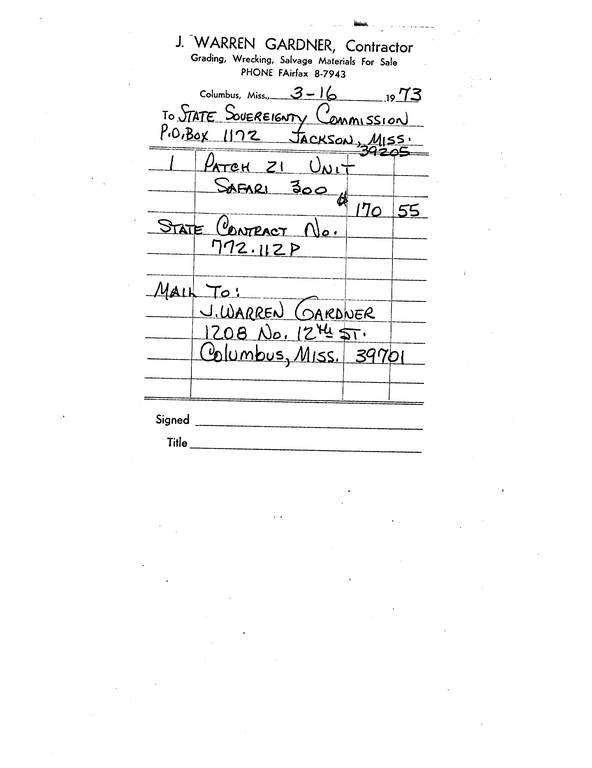 J. WARREN GARDNER, Contractor
Grading, Wrecking, Salvage Materials For Sale
PHONE FAirfax 8-7943
Columbus, Miss., 3-16 1973
To STATE SOVEREIGNTY COMMISSION
P.O. BOX 1172 JACKSON, MISS.
39205
1 PATCH 21 UNIT
SAFARI 300 $
170 55
STATE CONTRACT No.
772.112P
MAIL TO:
J. WARREN GARDNER
1208 No. 12TH ST.
Columbus, Miss. 39701
Signed
Title